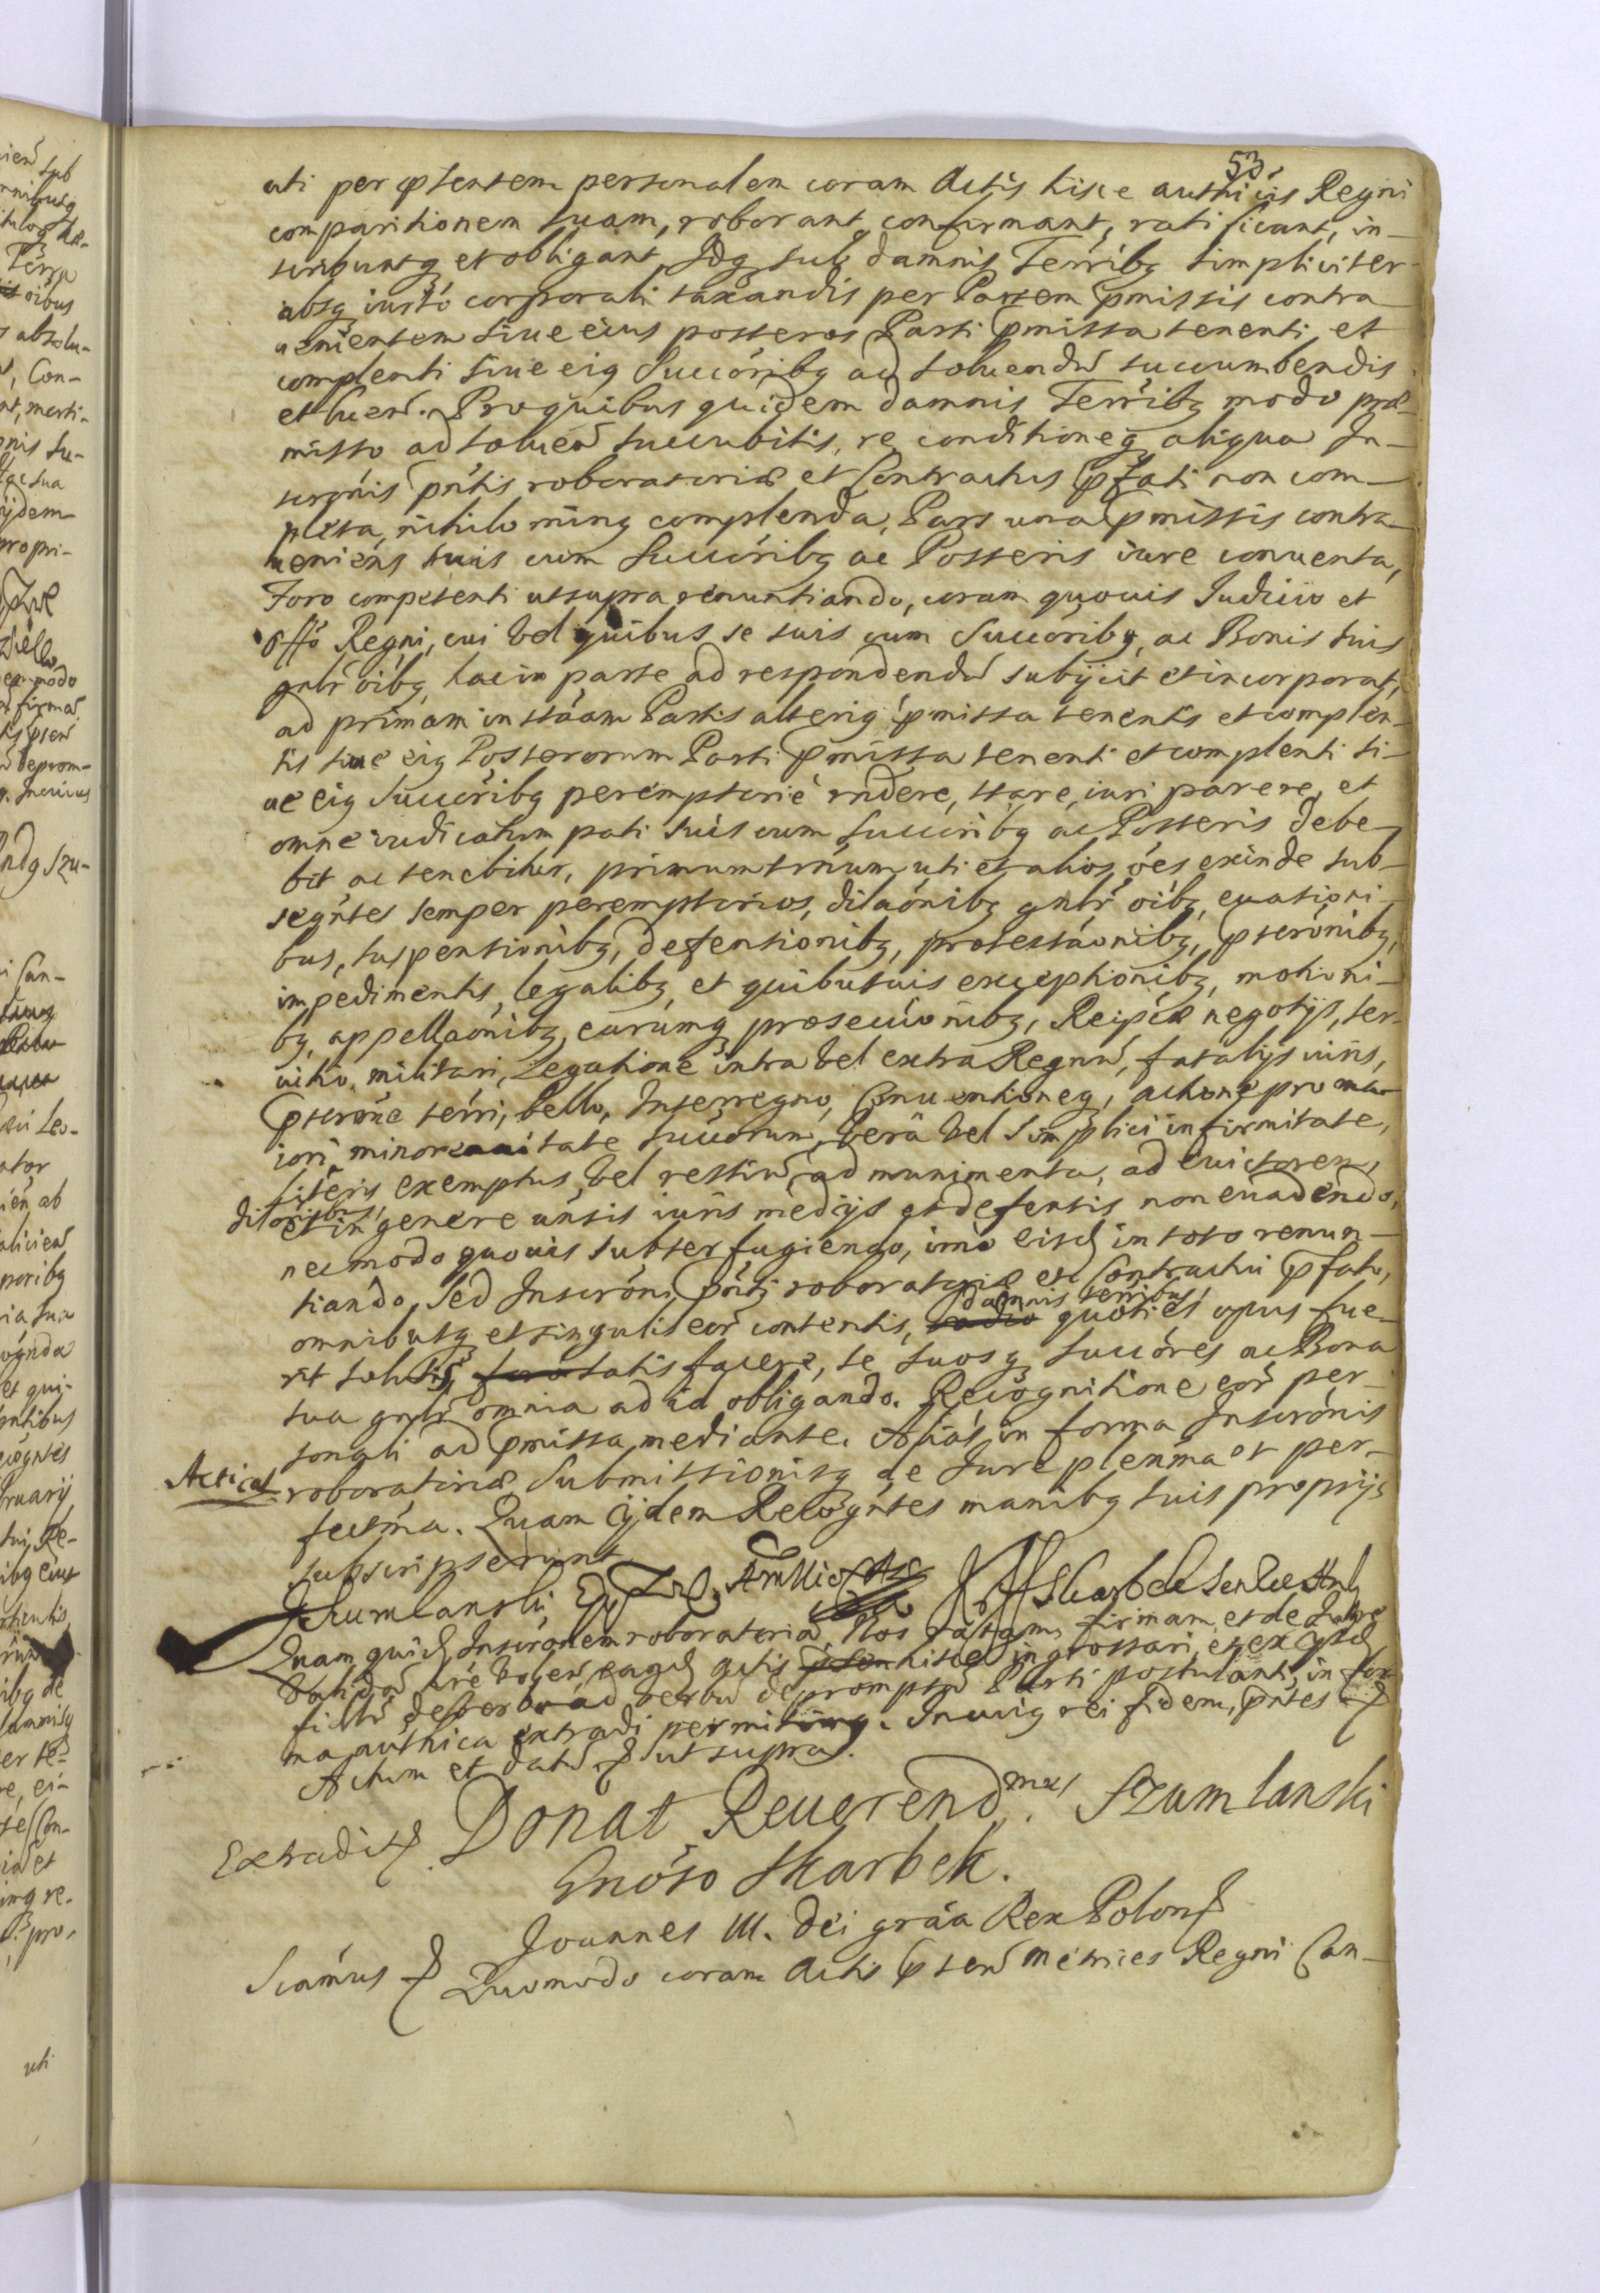 53
uti per pstentem personalem coram Actis hisce authicis Regni
comparitionem suam, roborant, confirmant, ratificant, in-
scribuntq et obligant, Idq sub damnis Terribq simpliciter
absq iurto corporali taxandis per Partem pmissis contra
uenientem siue eius posteros Parti pmissa tenenti et
complenti siue eiq Succoribq ad soluendu succumbendis
et luen. Pro quibus quidem damnis Terribq modo præ-
misso ad soluen succubitis, re conditioneq aliqua In-
scronis pntis roboratoriæ et Contractus pfati non com-
pleta, nihilominq complenda, Pars una pmissis contra-
ueniens suis cum Succoribq ac Posteris iure conuenta,
Foro competenti ut supra renuntiando, coram quouis Iudicio et
Offo Regni, cui vel quibus se suis cum Succoribq, ac Bonis suis
gnlr oibq, hac in parte ad respondendu subijcit et incorporat,
ad primam instaam Partis alteriq pmissa tenentis et complen-
tis siue eiq Posterorum Parti pmissa tenenti et complenti si-
ue eiq Succoribq peremptorie rndere, stare, iuri parere, et
omne iudicatum pati suis cum Succoribq ac Posteris debe-
bit ac tenebitur, primum trnum uti et alios oes exinde sub-
seqntes semper peremptorios, dilaonibq gnlr oibq, euasioni-
bus, suspensionibq, defensionibq, protestaonibq, pscronibq,
impedimentis, legalibq, et quibusuis exceptionibq, motioni-
bq, appellaonibq, earumq prosecuonibq, Reipcæ negotijs, ser-
uitio militari, Legatione intra vel extra Regnu, fatalijs iuris,
pscrone terri, bello, Interregno, Conuentioneq, actione pro ma-
iori, minorennitate Succorum, vera vel simplici infirmitate,
literis exemptus, vel restiu ad munimenta, ad euictorem,
dilaoribus, et in genere unsis iuris medijs et defensis non euadendo,
nec modo quouis subterfugiendo, imo eisd in toto renun-
tiando, sed Inscroni pnti roboratoriæ et Contractui pfato,
damnis terribus
omnibusq et singulis eor contentis, quoties opus fue-
rit solutis, satisfacere, se suosq Succores ac Bona
sua gnlr omnia ad id obligando. Recognitione eor per-
sonali ad pmissa mediante. Alias in forma Inscronis
Acticat roboratoriæ, Submissionisq de Iure plenma et per-
fectma. Quam ijdem Recogntes manibq suis proprijs
subscripserunt
J Szumlanski, Ep
Quam quid Inscronem roboratoria, Nos ratam, firmam, et de Iure
valida hisce ingrossari, et ex ijsd
de verbo ad verbu depromptu Parti postulanti in for-
ma authica extradi permisimq. In cuiq rei fidem, pntes
Actum et Datu ut supra.
Extradit. Donat Reuerendmus Szumlanski
Gnoso Skarbek.
Joannes III. Dei graa Rex Polon
Scamus Quomodo coram Actis psten Metrices Regni Can-